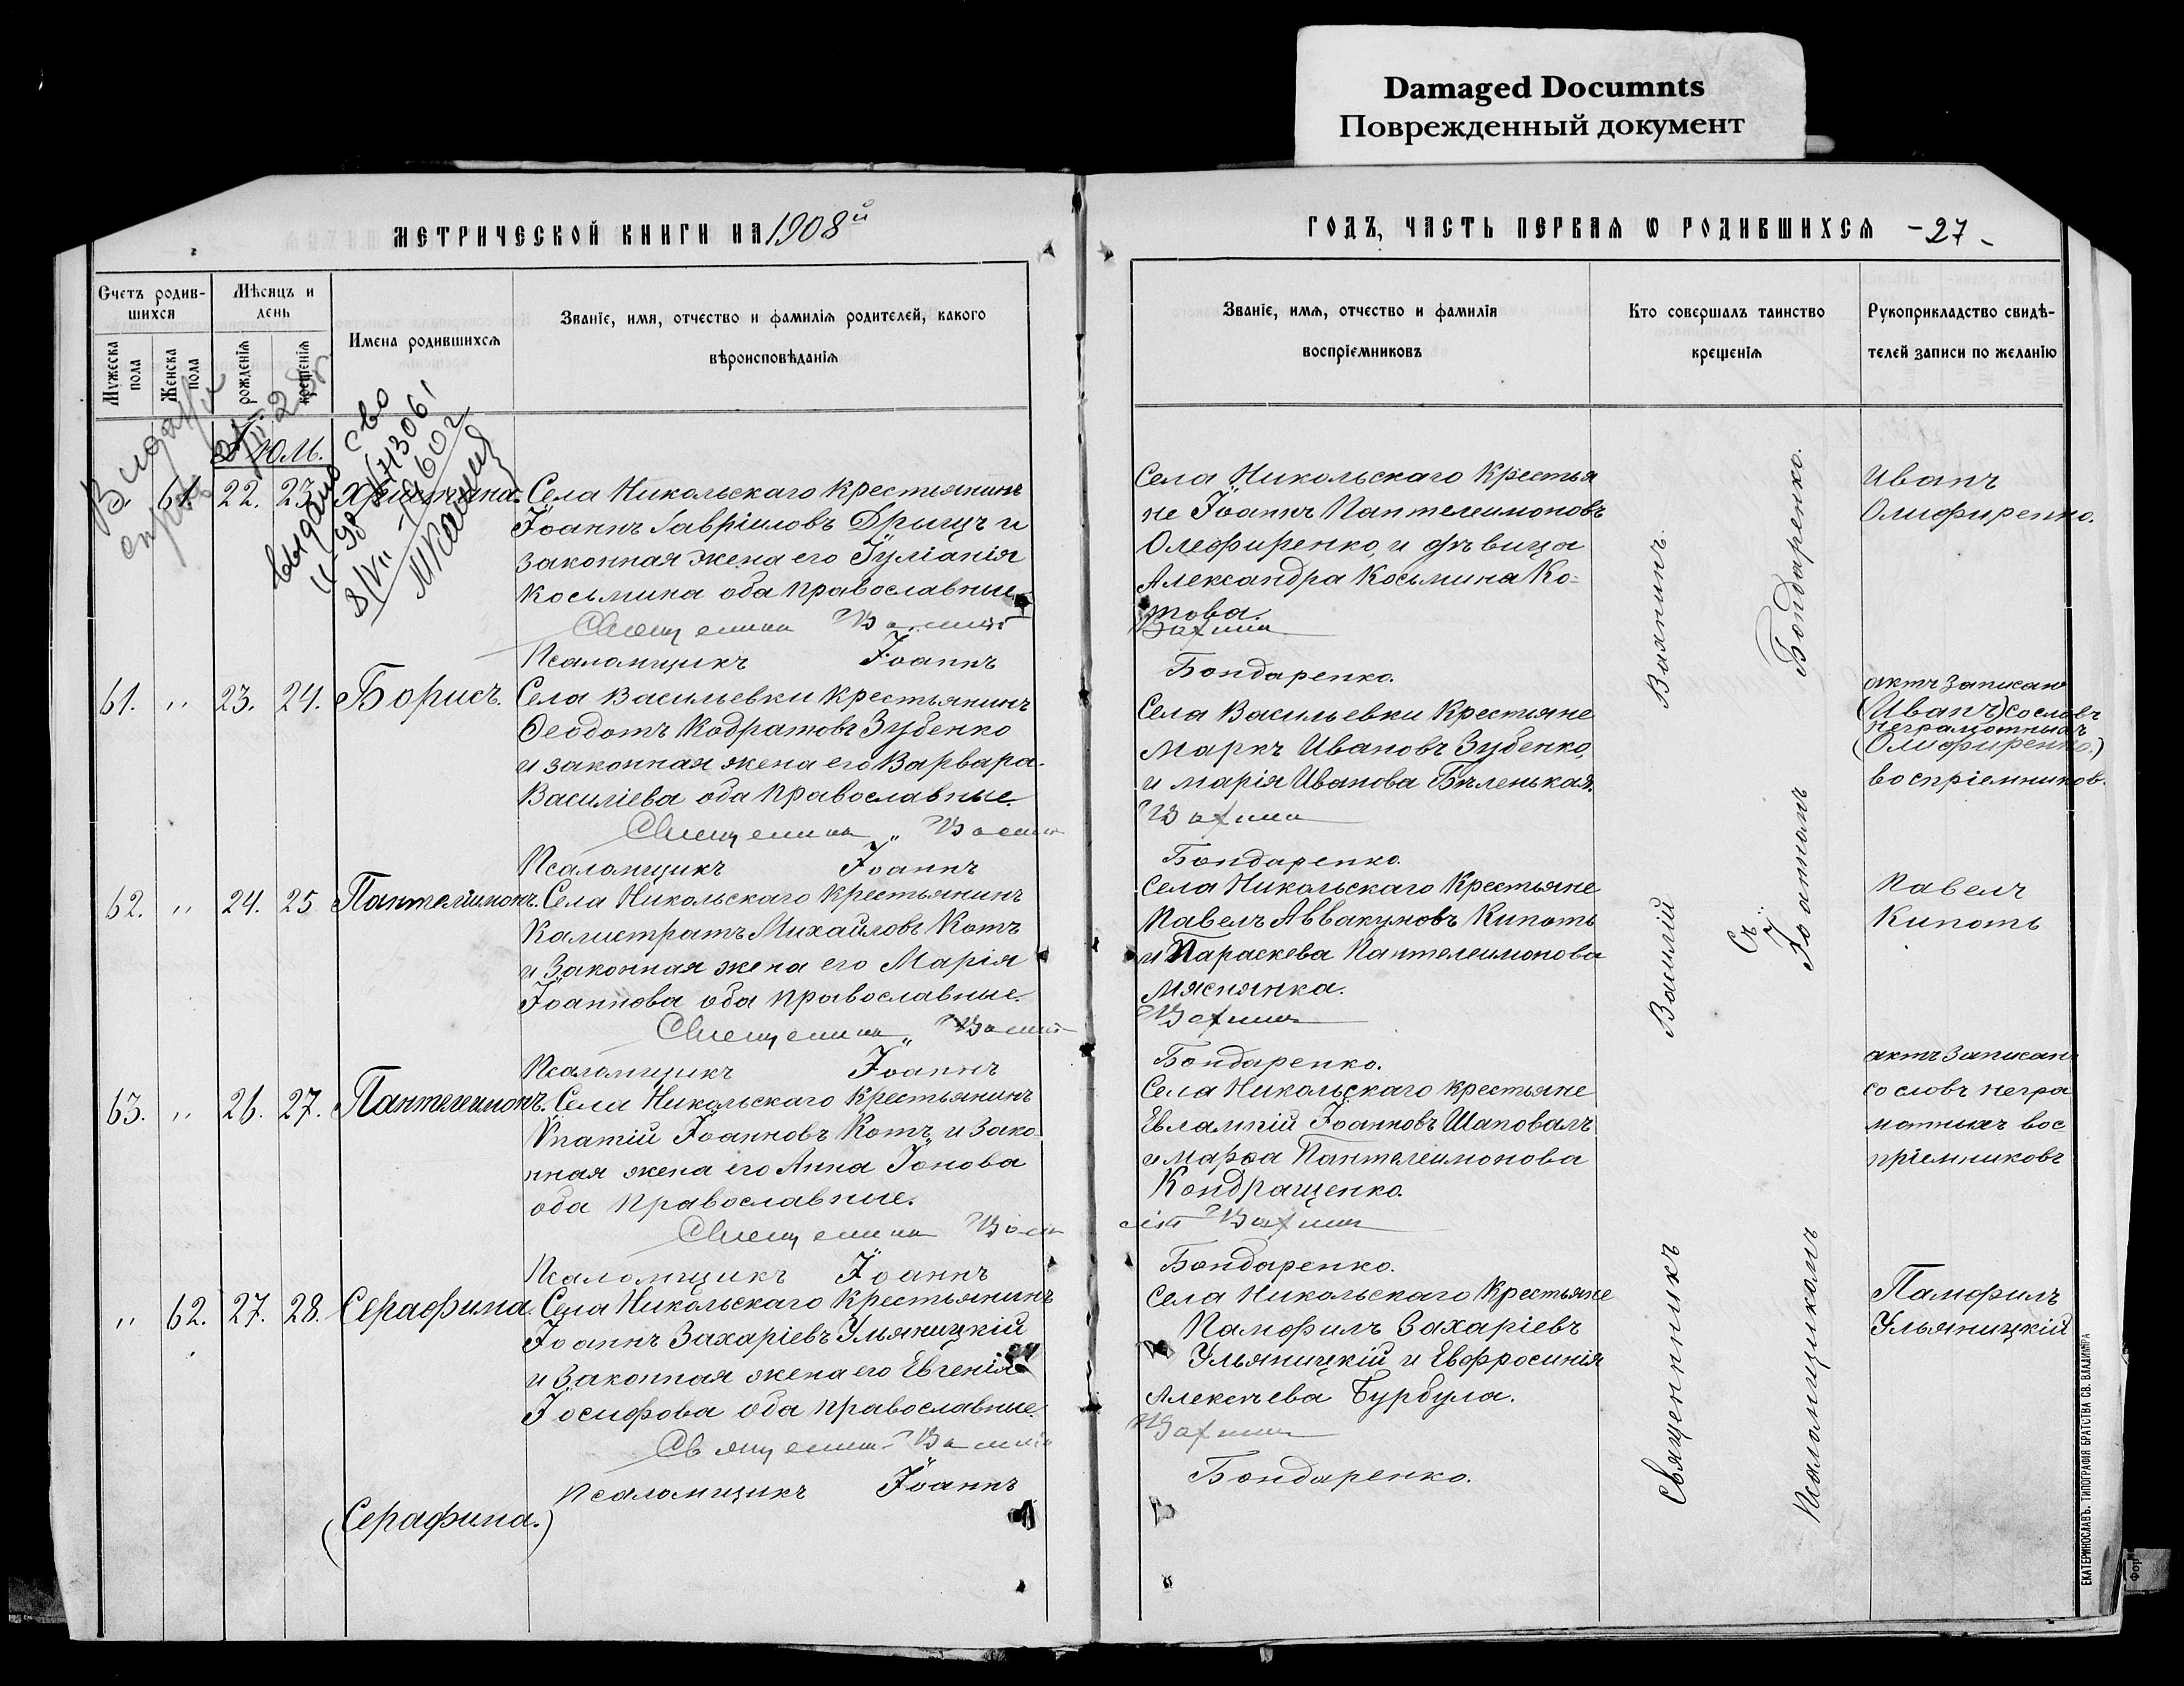 Damaged Documnts
Поврежденный документ
МЕТРИЧЕСКОЙ КНИГИ НА 1908й
Счетъ родив-
шихся
Мѣсяцъ и
день
Имена родившихся
Званіе, имя, отчество и фамилія родителей, какого
вѣроисповѣданія
Мужеска
пола
Женска
пола
рожденія
крещенія
Выдано с во
8/VII - 1960 г
Іюль.
61. 22. 23. Христина. Села Никольскаго крестьянинъ
Іоаннъ Гавріиловъ Дрыцъ и
законная жена его Іуліанія
Косьмина оба православные
Священникъ Василій
Псаломщикъ Іоаннъ
61. " 23. 24. Борисъ. Села Васильевки крестьянинъ
Ѳеодотъ Кодратовъ Зубенко
и законная жена его Варвара
Василіева оба православные.
Священникъ Василій
Псаломщикъ Іоаннъ
62. " 24. 25 Пантелеимонъ. Села Никольскаго крестьянинъ
Калистратъ Михайловъ Котъ
и законная жена его Марія
Іоаннова оба православные.
Священникъ Василій
Псаломщикъ Іоаннъ
63. " 26. 27. Пантелеимонъ. Села Никольскаго крестьянинъ
Ѵпатій Іоанновъ Котъ и зако
нная жена его Анна Іонова
оба православные.
Священникъ Васи
Псаломщикъ Іоаннъ
" 62. 27. 28. Серафима Села Никольскаго крестьянинъ
Іоаннъ Захаріевъ Ульяницкій
и законная жена его Евгенія
Іосифова оба православные.
Священникъ Василій
Псаломщикъ Іоаннъ
(Серафима.)
ГОДЪ, ЧАСТЬ ПЕРВАЯ Ѡ РОДИВШИХСЯ - 27 -
Званіе, имя, отчество и фамилія
воспріемниковъ
Кто совершалъ таинство
крещенія
Рукоприкладство свидѣ-
телей записи по желанію
Села Никольскаго крестья
не Іоаннъ Пантелеимоновъ
Олефиренко, и дѣвица
Александра Косьмина Ко=
това.
Вахнинъ
Бондаренко.
Села Васильевки крестьяне
Маркъ Ивановъ Зубенко,
и Марія Иванова Бѣленькая.
Вахнинъ
Бондаренко.
Села Никольскаго крестьяне
Павелъ Аввакумовъ Кипоть
и Параскева Пантелеимонова
Мяснянка.
Вахнинъ
Бондаренко.
Села Никольскаго крестьяне
Евлампій Іоанновъ Шаповалъ
и Марѳа Пантелеимонова
Кондращенко.
лій Вахнинъ
Бондаренко.
Села Никольскаго крестьяне
Памфилъ Захаріевъ
Ульяницкій и Евфросинія
Алексѣева Бурбула.
Вахнинъ
Бондаренко.
Священникъ Василій Вахнинъ
Съ
Псаломщикомъ Іоанномъ Бондаренко.
Иванъ
Олифиренко.
актъ записанъ
(Иванъ) со словъ
неграмотныхъ
(Олифиренко.)
воспріемников.
Павелъ
Кипоть
актъ записанъ
со словъ негра
мотныхъ вос
пріемниковъ
Памфилъ
Ульяницкій
ЕКАТЕРИНОСЛАВЪ. ТИПОГРАФІЯ БРАТСТВА СВ. ВЛАДИМІРА